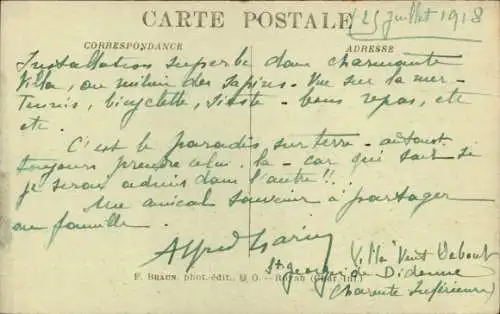 CARTE POSTALE
25 Juillet 1918
CORRESPONDANCE
ADRESSE
Installation superbe dans charmante
Villa, au milieu des sapins. Vue sur la mer-
Tennis, bicyclette, sieste - bons repas, etc
etc.
C'est le paradis sur terre - autant
toujours prendre celui-là - car qui sait si
je serai admis dans l'autre!!
Mon amical souvenir à partager
en famille.
Alfred
Villa Vent Debout
St Georges de Didonne
Charente Inférieure
F. BRAUN, phot.-édit., Royan (Char.-Inf.)